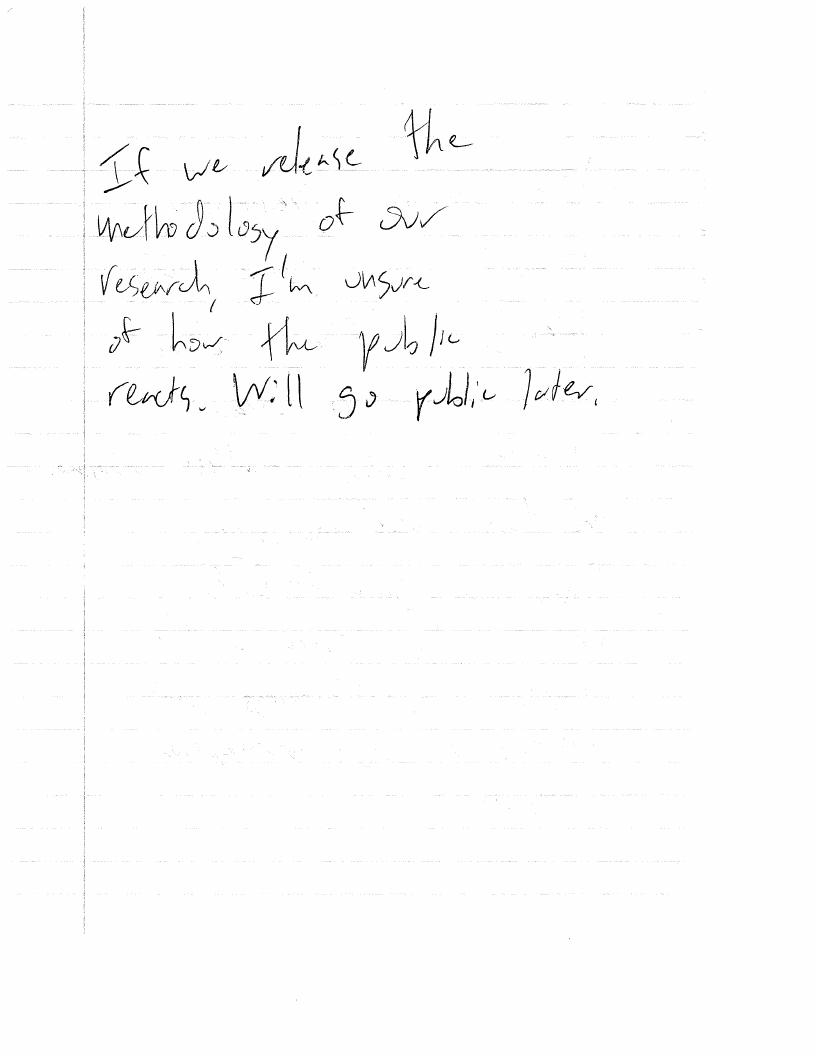 If we release the
methodology of our
research, I'm unsure
of how the public
reacts. Will go public later.